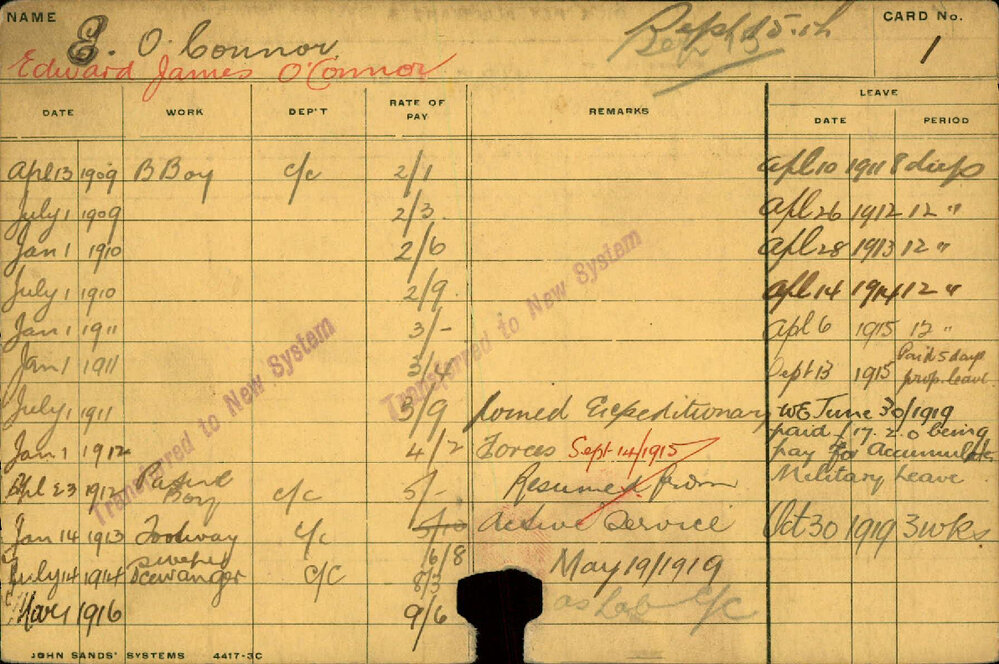 NAME
E. O'Connor
Edward James O'Connor
Sept 15
CARD No.
1
DATE WORK DEP'T RATE OF PAY REMARKS LEAVE
DATE PERIOD
Apl 13 1909 B Boy c/c 2/1 Apl 10 1911 8 days
July 1 1909 2/3 Apl 26 1912 12 "
Jan 1 1910 2/6 Apl 28 1913 12 "
July 1 1910 2/9 Apl 14 1914 12 "
Jan 1 1911 3/- Apl 6 1915 12 "
Jan 1 1911 3/4 Sept 13 1915 Paid 5 days prop. leave
July 1 1911 3/9 Joined Expeditionary WE June 30/1919
Jan 1 1912 4/2 Forces Sept 14/1915 paid £17.2.0 being
pay for Accumulated
Apl 23 1912 Boy c/c 5/- Resumed from Military Leave
Jan 14 1913 Footway c/c 5/10 Active Service Oct 30 1919 3 wks
sweeper 6/8
July 14 1914 Scavanger c/c 8/3 May 19/1919
Nov 1 1916 9/6 as Lab c/c
Transferred to New System
Transferred to New System
JOHN SANDS' SYSTEMS 4417-3C